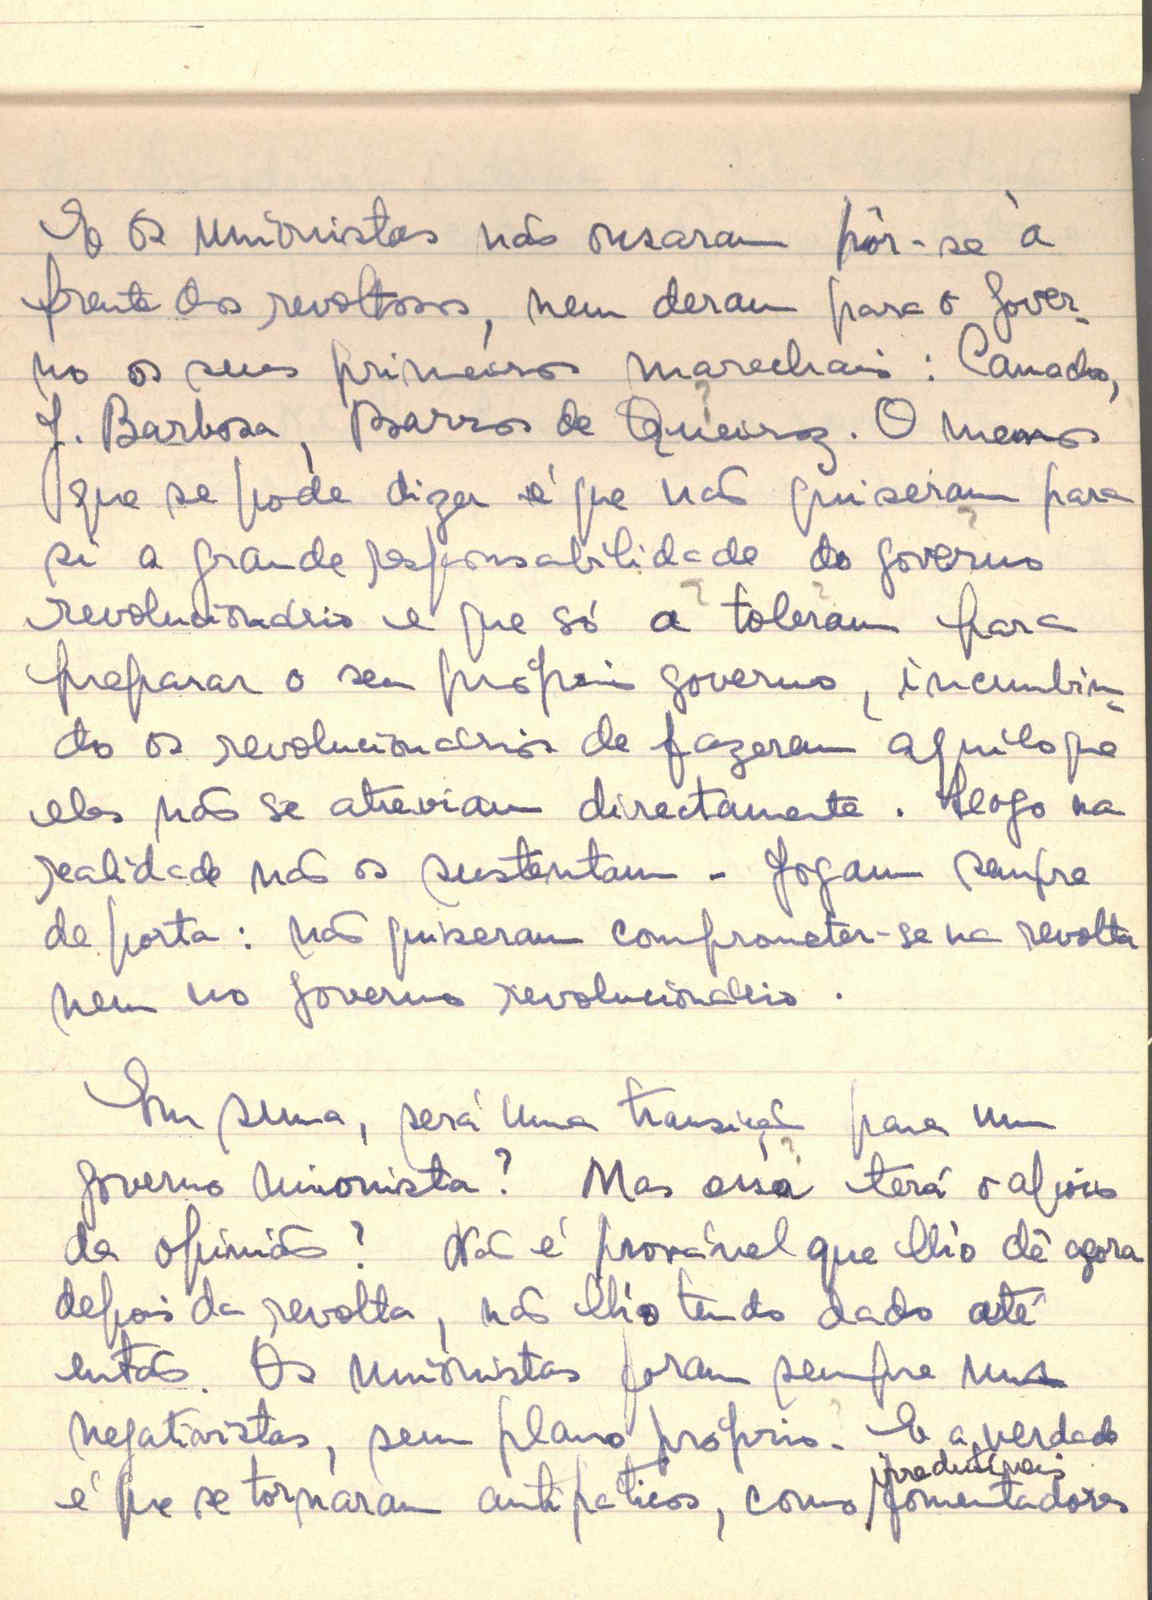 E os unionistas não ousaram pôr-se à
frente dos revoltosos, nem deram para o gover-
no os seus primeiros marechais: Camacho,
J. Barbosa, Barros de Queiroz. O menos
que se póde dizer é que não quiseram para
si a grande responsabilidade do governo
revolucionário e que só a toleram para
preparar o seu próprio governo, incumbin-
do os revolucionários de fazerem aquilo que
eles não se atreviam directamente. Logo na
realidade não os sustentam - Jogam sempre
de porta: não quiseram comprometer-se na revolta
nem no governo revolucionário.
Em suma, será uma transição para um
governo unionista? Mas essa terá o apoio
da opinião? Não é provável que lho dê agora
depois da revolta, não lho tendo dado até
então. Os unionistas foram sempre uns
negativistas, sem plano próprio. E a verdade
é que se tornaram antipaticos, como irredutiveis fomentadores